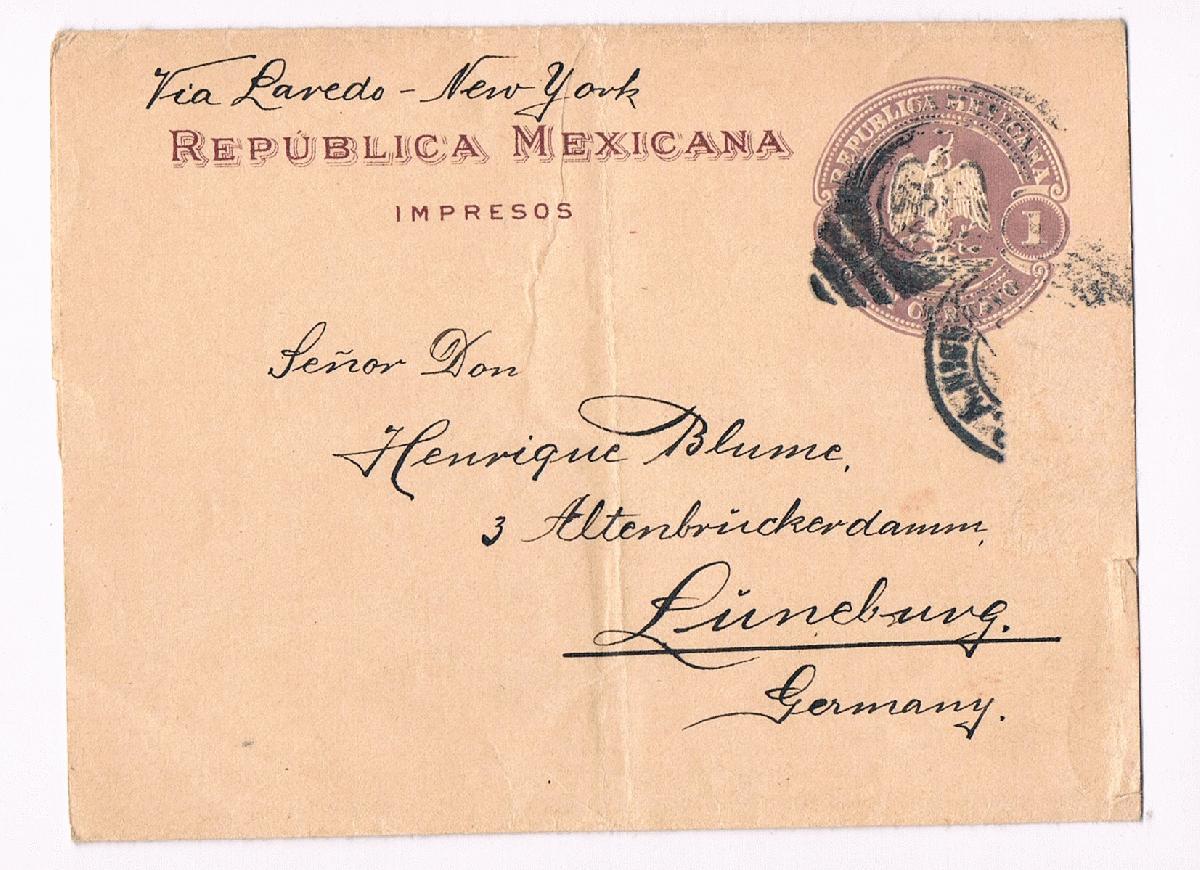 Via Laredo - New York
REPÚBLICA MEXICANA
IMPRESOS
REPUBLICA MEXICANA
1
CENTAVO
Señor Don
Henrique Blume,
3 Altenbrückerdamm,
Lüneburg.
Germany.